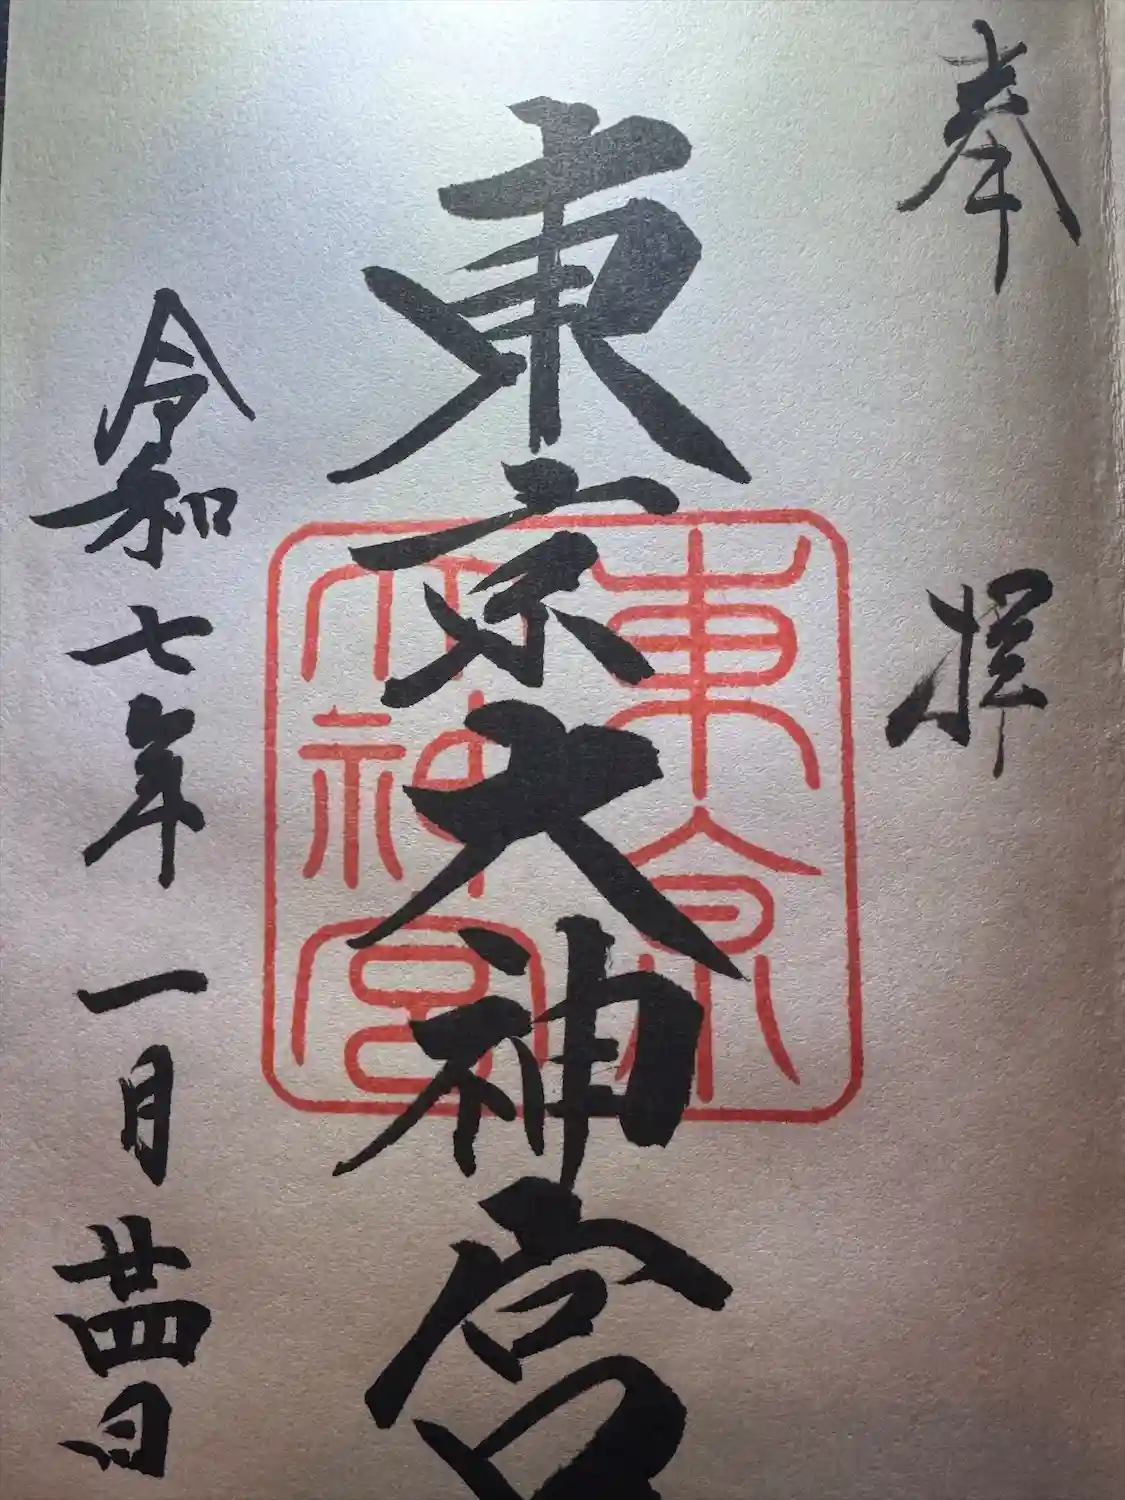 奉拝
東京大神宮
東京
大神宮
令和七年一月廿四日